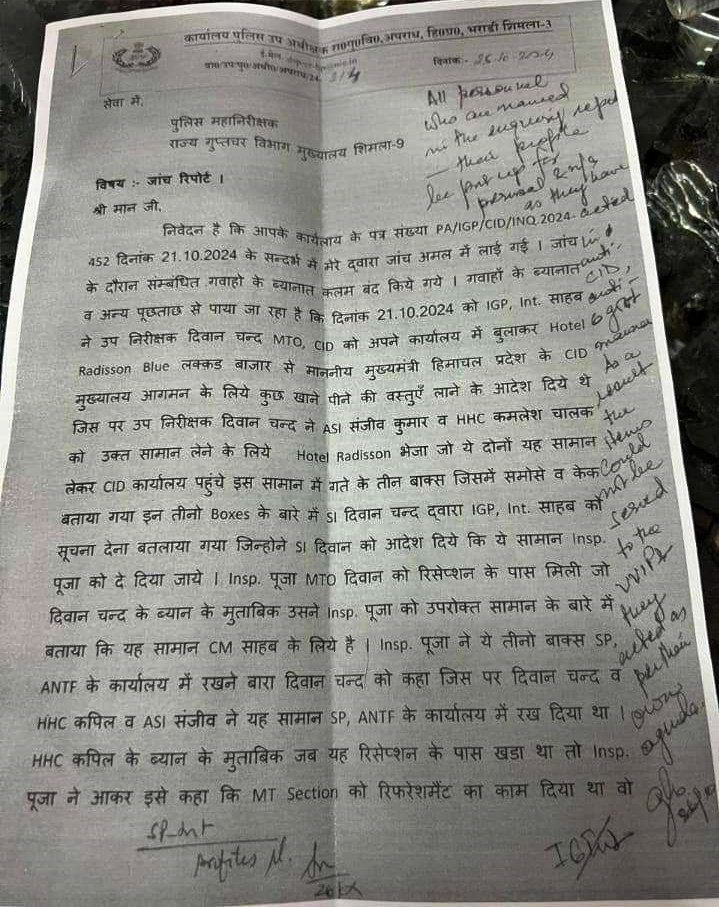 कार्यालय पुलिस उप अधीक्षक रा०गु०वि०,अपराध, हि०प्र०, भराडी शिमला-3
दिनांक:- 25-10-2024
सेवा में,
पुलिस महानिरीक्षक
राज्य गुप्तचर विभाग मुख्यालय शिमला-9
विषय :- जांच रिपोर्ट ।
श्री मान जी,
निवेदन है कि आपके कार्यालय के पत्र संख्या PA/IGP/CID/INQ.2024.
452 दिनांक 21.10.2024 के सन्दर्भ में मेरे द्वारा जांच अमल में लाई गई । जांच
के दौरान सम्बंधित गवाहो के ब्यानात कलम बंद किये गये । गवाहों के ब्यानात
व अन्य पूछताछ से पाया जा रहा है कि दिनांक 21.10.2024 को IGP, Int. साहब
ने उप निरीक्षक दिवान चन्द MTO, CID को अपने कार्यालय में बुलाकर Hotel
Radisson Blue लक्कड बाजार से माननीय मुख्यमंत्री हिमाचल प्रदेश के CID
मुख्यालय आगमन के लिये कुछ खाने पीने की वस्तुएँ लाने के आदेश दिये थे
जिस पर उप निरीक्षक दिवान चन्द ने ASI संजीव कुमार व HHC कमलेश चालक
को उक्त सामान लेने के लिये Hotel Radisson भेजा जो ये दोनों यह सामान
लेकर CID कार्यालय पहुंचे इस सामान में गते के तीन बाक्स जिसमें समोसे व केक
बताया गया इन तीनो Boxes के बारे में SI दिवान चन्द द्वारा IGP, Int. साहब को
सूचना देना बतलाया गया जिन्होने SI दिवान को आदेश दिये कि ये सामान Insp.
पूजा को दे दिया जाये । Insp. पूजा MTO दिवान को रिसेप्शन के पास मिली जो
दिवान चन्द के ब्यान के मुताबिक उसने Insp. पूजा को उपरोक्त सामान के बारे में
बताया कि यह सामान CM साहब के लिये है । Insp. पूजा ने ये तीनो बाक्स SP,
ANTF के कार्यालय में रखने बारा दिवान चन्द को कहा जिस पर दिवान चन्द व
HHC कपिल व ASI संजीव ने यह सामान SP, ANTF के कार्यालय में रख दिया था ।
HHC कपिल के ब्यान के मुताबिक जब यह रिसेप्शन के पास खडा था तो Insp.
पूजा ने आकर इसे कहा कि MT Section को रिफरेशमैंट का काम दिया था वो
All personnel
who are named
in the enquiry report
their profile
be put up for
perusal & n/a
as they have
acted
in
anti-
CID,
anti-
govt
manner
As a
result
the
items
could
not be
served
to the
VVIPs
they
acted as
per their
own
agenda.